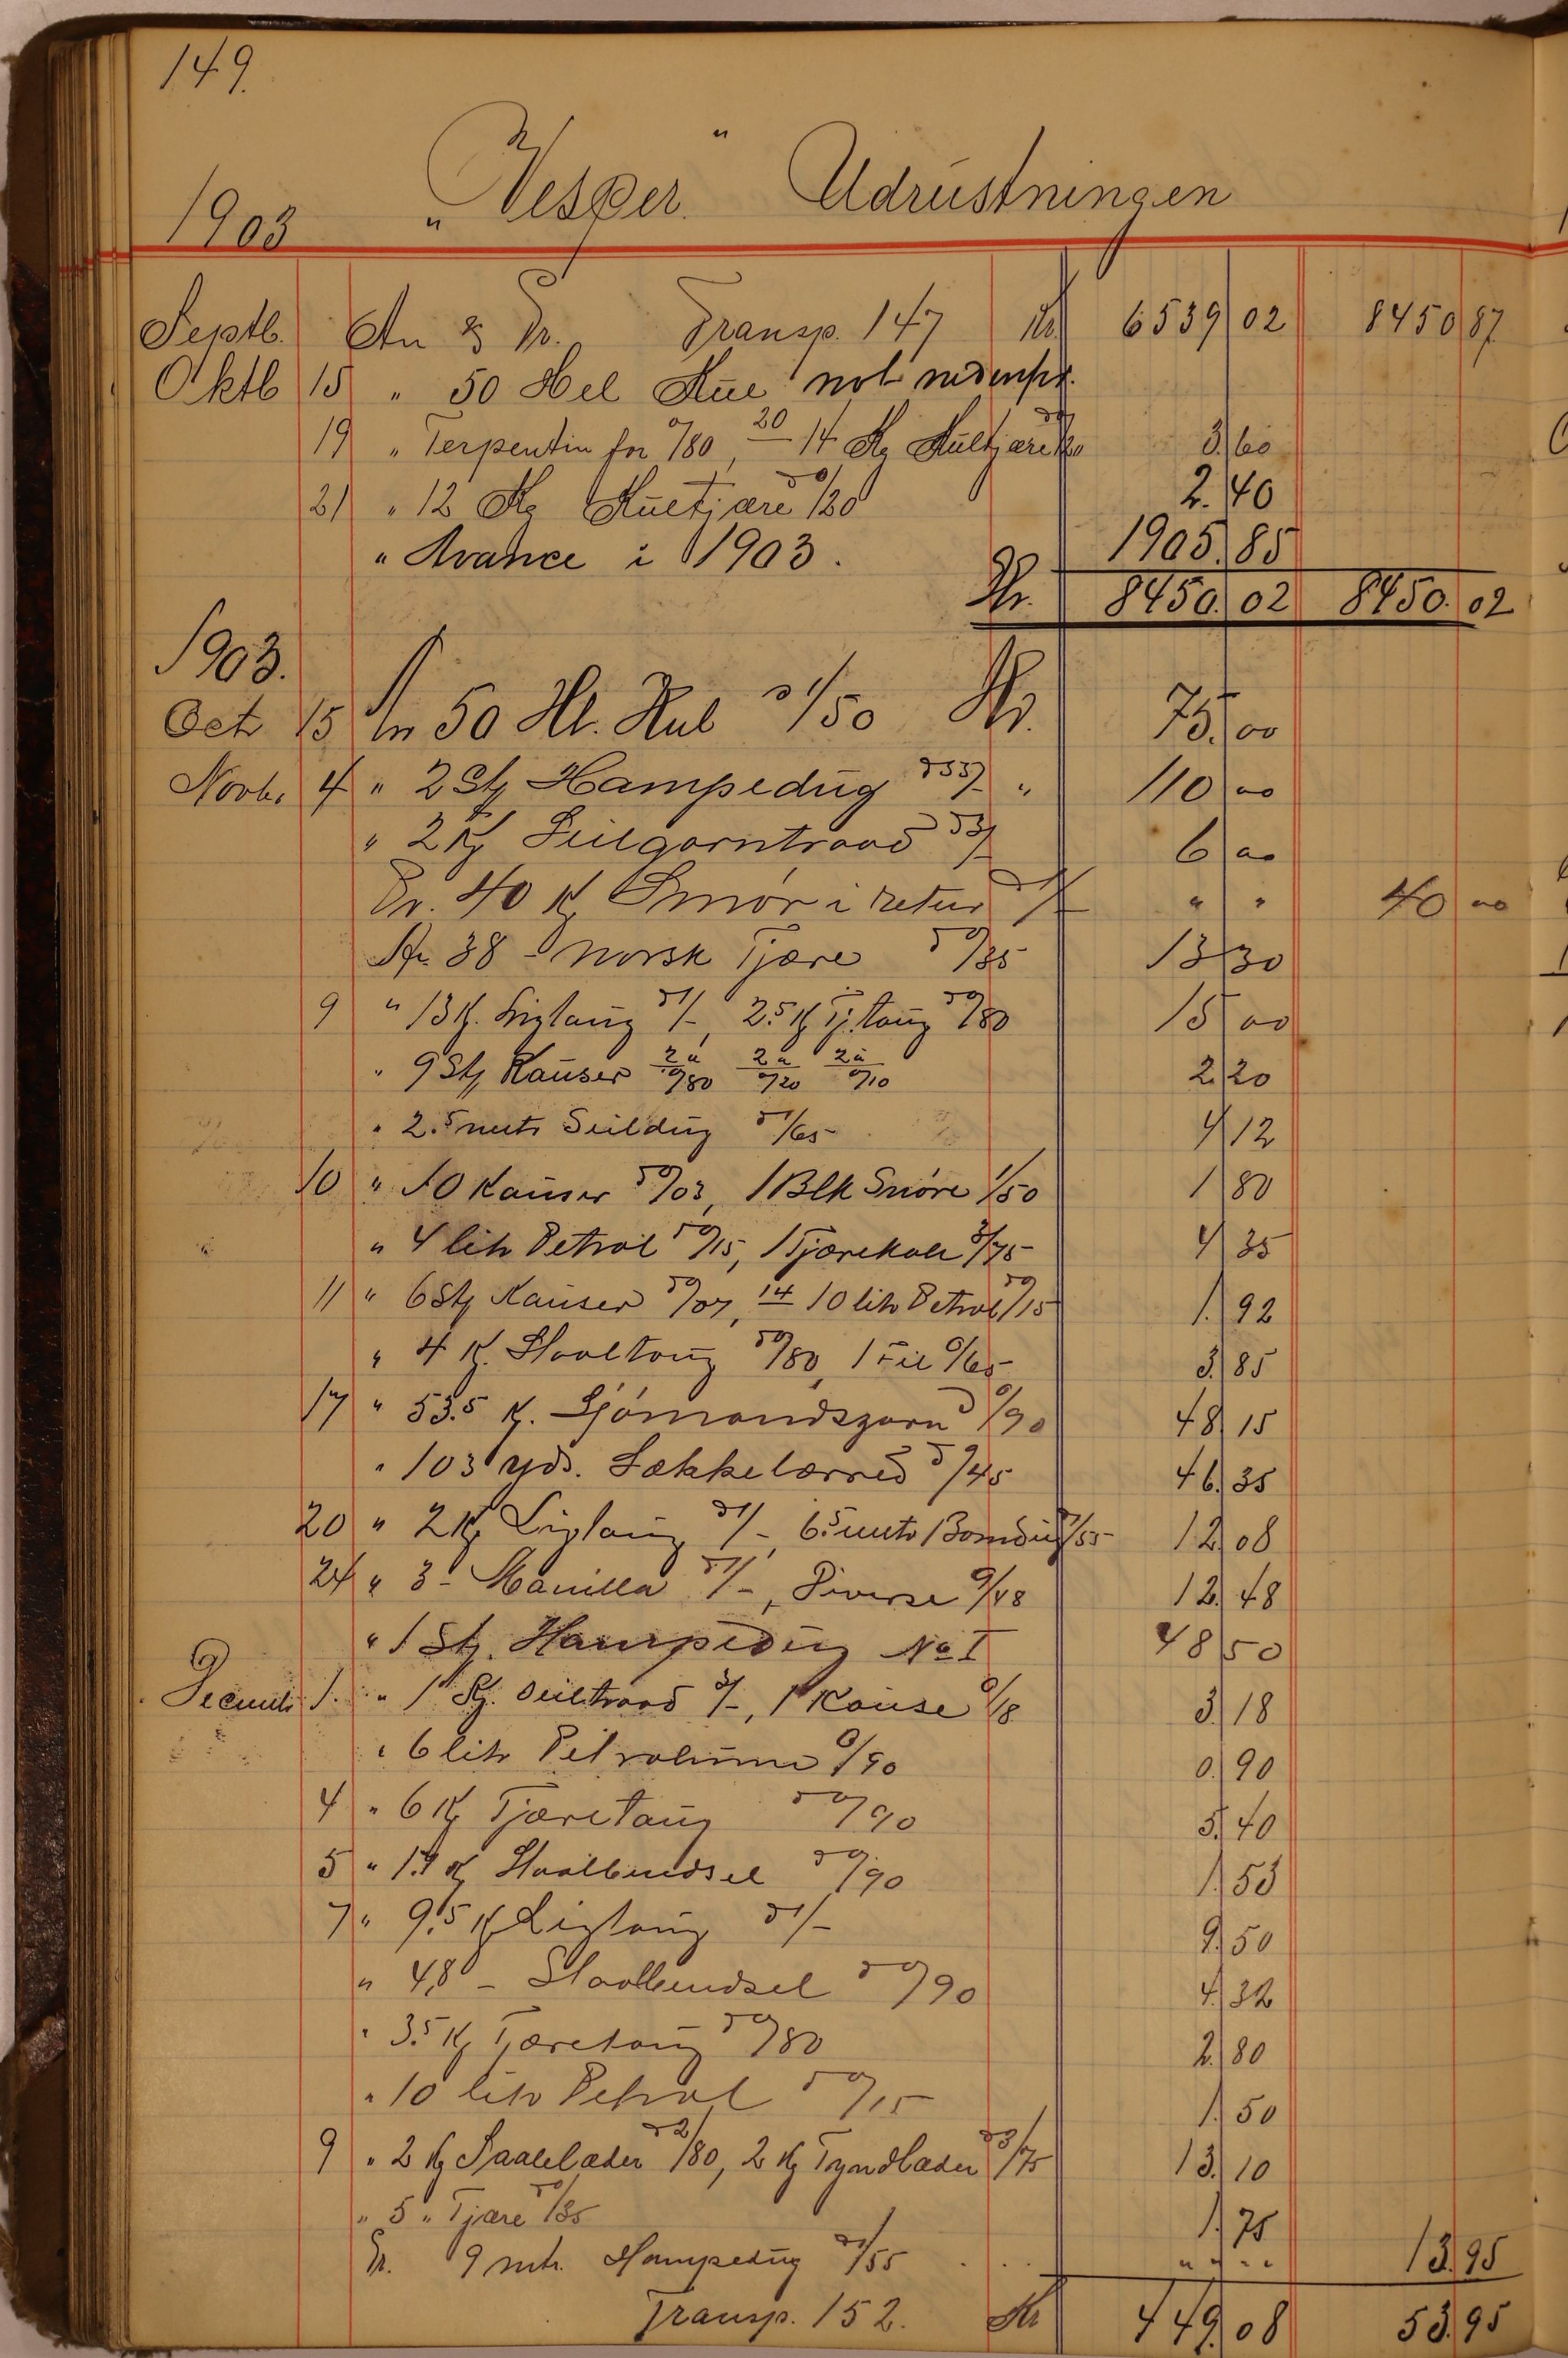 149.
1903 "Vesper" Udrustningen
Septb. An & Pr. Transp. 147 Kr. 6539 02 8450 87
Oktb 15 " 50 Hel Kul
19 " Terpentin for 0/80, 20 14 Kg Kultjære 3.60
21 " 12 Kg Kultjære à 0/20 2.40
" Avance i 1903. 1905.85
Kr. 8450.02 8450.02
1903.
Octr 15 An 50 Hl. Kul à 1/50 Kr. 75.00
Novbr 4 " 2 Stk Hampedug à 55/- " 110 00
" 2 Kg Seilgarntraad à 3/- 6 00
Pr. 40 K Smør i retur à 1/- " " 40 00
An 38 - norsk Tjære à 0/35 13 30
9 " 13 K. Ligtaug à 1/-, 2.5 K Tj.taug à 0/80 15 00
" 9 Stk Kauser 2 à 0/80 2 à 0/20 2 à 0/10 2.20
" 2.5 mtr Seildug à 1/65 4 12
10 " 10 Kauser à 0/03, 1 Blk Snøre 1/50 1 80
" 4 litr Petrol à 0/15, 1 Tjærekost 3/75 4 35
11 " 6 Stk Kauser à 0/07, 14 10 litr Petrol à 0/15 1.92
" 4 K. Staaltaug à 0/80, 1 Fil 0/65 3.85
17 " 53.5 K. Sjómandsgarn à 0/90 48.15
" 103 yds. Sækkelærred à 0/45 46.35
20 " 2 Kg Ligtaug à 1/-, 6.5 mtr Bomdug /55 12.08
24 " 3 - Manilla à 1/-, Diverse 9/48 12.48
" 1 Stk. Hampedug No I 48 50
Decembr 1. " 1 Kg. Seiltraad 3/-, 1 Kause 0/18 3.18
" 6 litr Petroleum 0/90 0.90
4 " 6 Kg Tjæretaug à 0/90 5.40
5 " 1.7 K Staalbendsel à 0/90 1.53
7 " 9.5 K Ligtaug à 1/- 9.50
" 4,8 - Staalbendsel à 0/90 4.32
" 3.5 Kg Tjæretaug à 0/80 2.80
" 10 litr Petrol à 0/15 1.50
9 " 2 Kg Saalelæder à 2/80, 2 Kg Tyndlæder à 3/75 13.10
" 5 " Tjære à 0/35 1.75
Pr. 9 mtr. Hampedug à 1/55 " " - - 13.95
Transp. 152. Kr 449.08 53.95